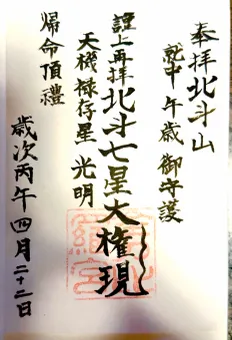 奉拜北斗山
就中 午歳 御守護
謹上再拝 北斗七星大権現
天機禄存星 光明
帰命頂禮
歳次丙午四月二十二日